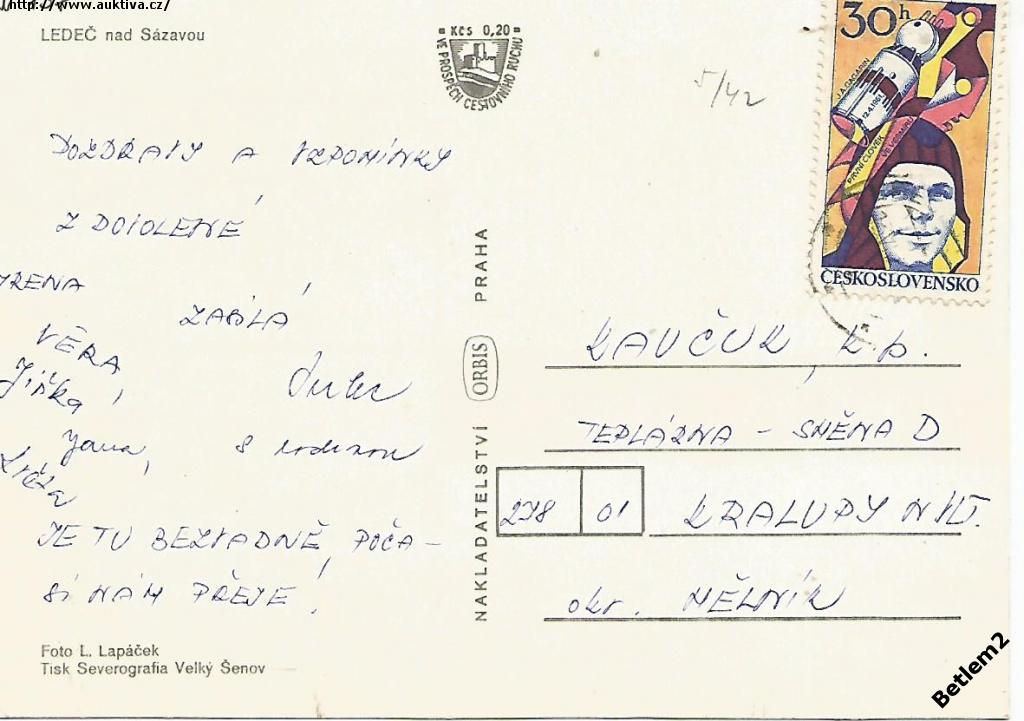 http://www.auktiva.cz/
LEDEČ nad Sázavou
Kčs 0,20
VE PROSPĚCH CESTOVNÍHO RUCHU
5/42
30h
J.A.GAGARIN
12.4.1961
PRVNÍ ČLOVĚK
VE VESMÍRU
ČESKOSLOVENSKO
POZDRAVY A VZPOMÍNKY
Z DOVOLENÉ
IRENA
VĚRA
Jiřka
Jana,
s rodinou
JE TU BEZVADNĚ, POČA-
SÍ NÁM PŘEJE!
NAKLADATELSTVÍ ORBIS PRAHA
KAUČUK, k.p.
TEPLÁRNA - SMĚNA D
278 01 KRALUPY N VLT.
okr. MĚLNÍK
Foto L. Lapáček
Tisk Severografia Velký Šenov
Betlem2